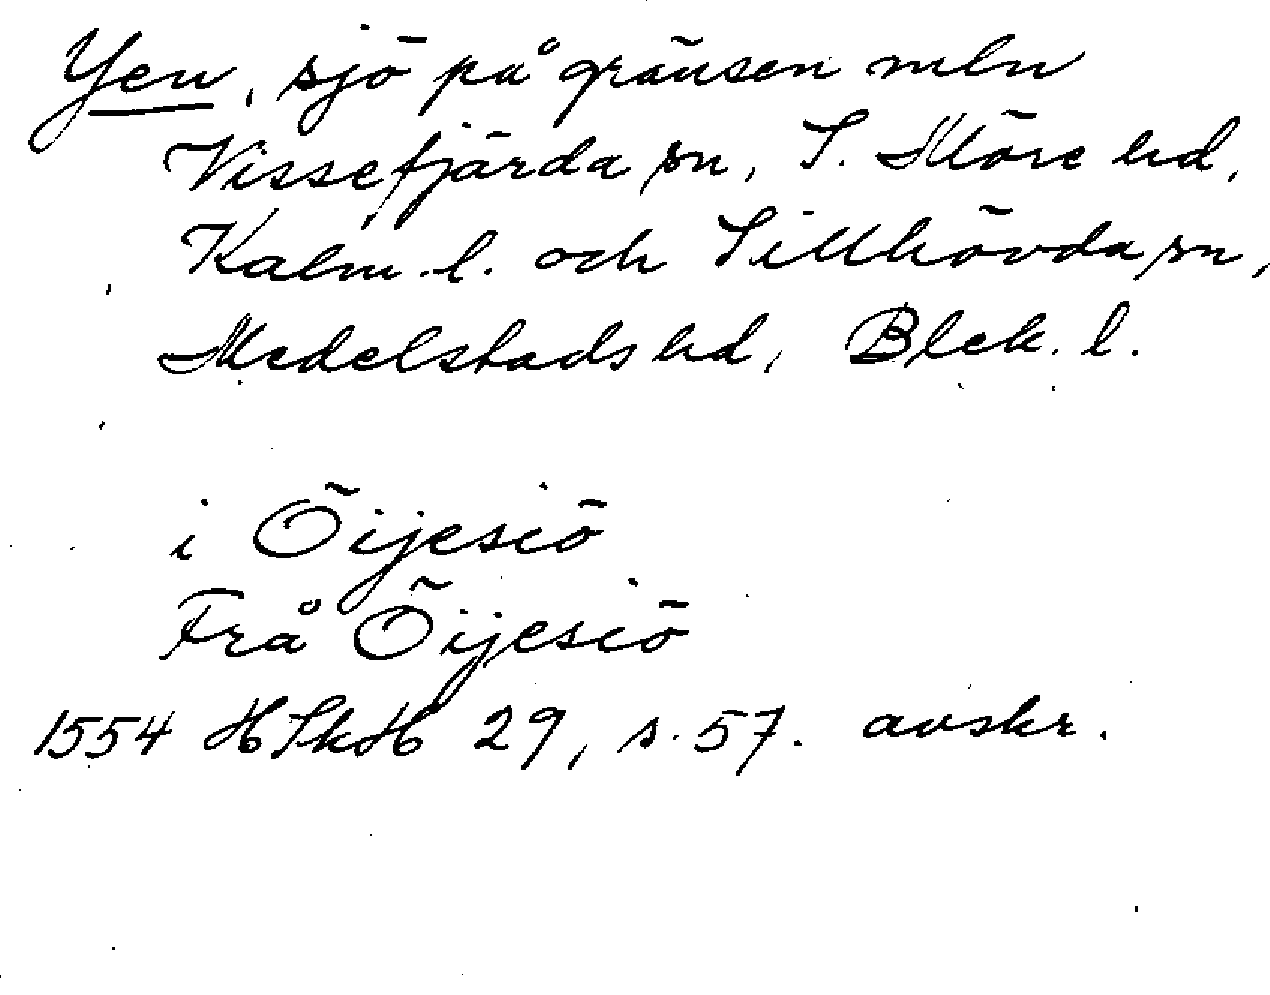 Yen, sjö på gränsen mln
Vissefjärda sn, S. Möre hd,
Kalm. l. och Sillhövda sn,
Medelstads hd, Blek. l.
i Öijesiö
Frå Öijesiö
1554 HSkH 29, s. 57. avskr.